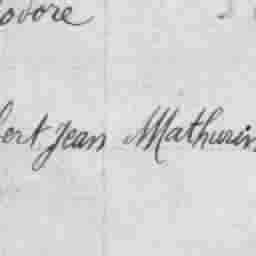 ovore
bert Jean Mathurin